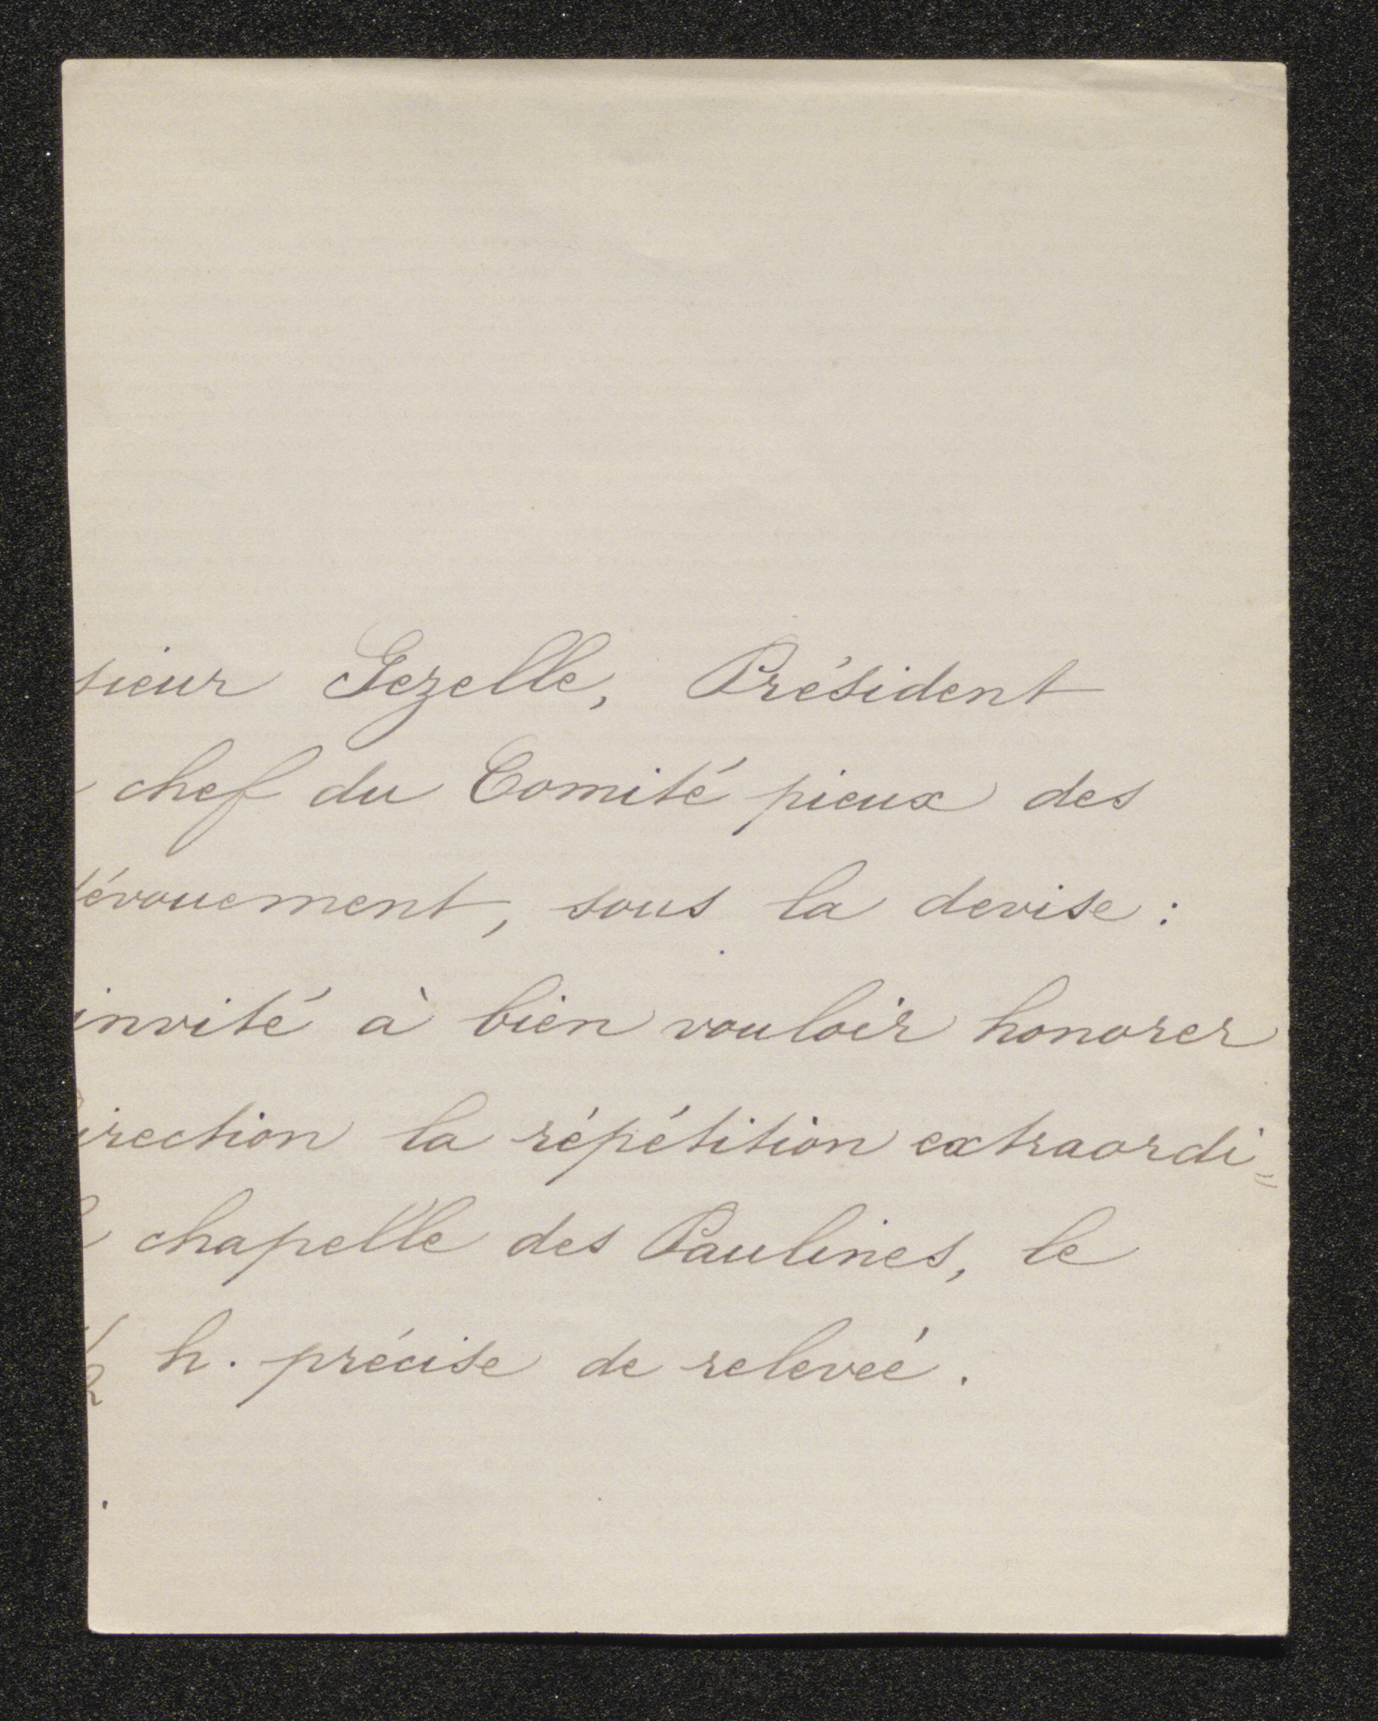 sieur Gezelle, Président
chef du Comité pieux des
dévouement, sous la devise :
invité à bien vouloir honorer
irection la répétition extraordi=
chapelle des Paulines, le
1/2 h. précise de releveé.